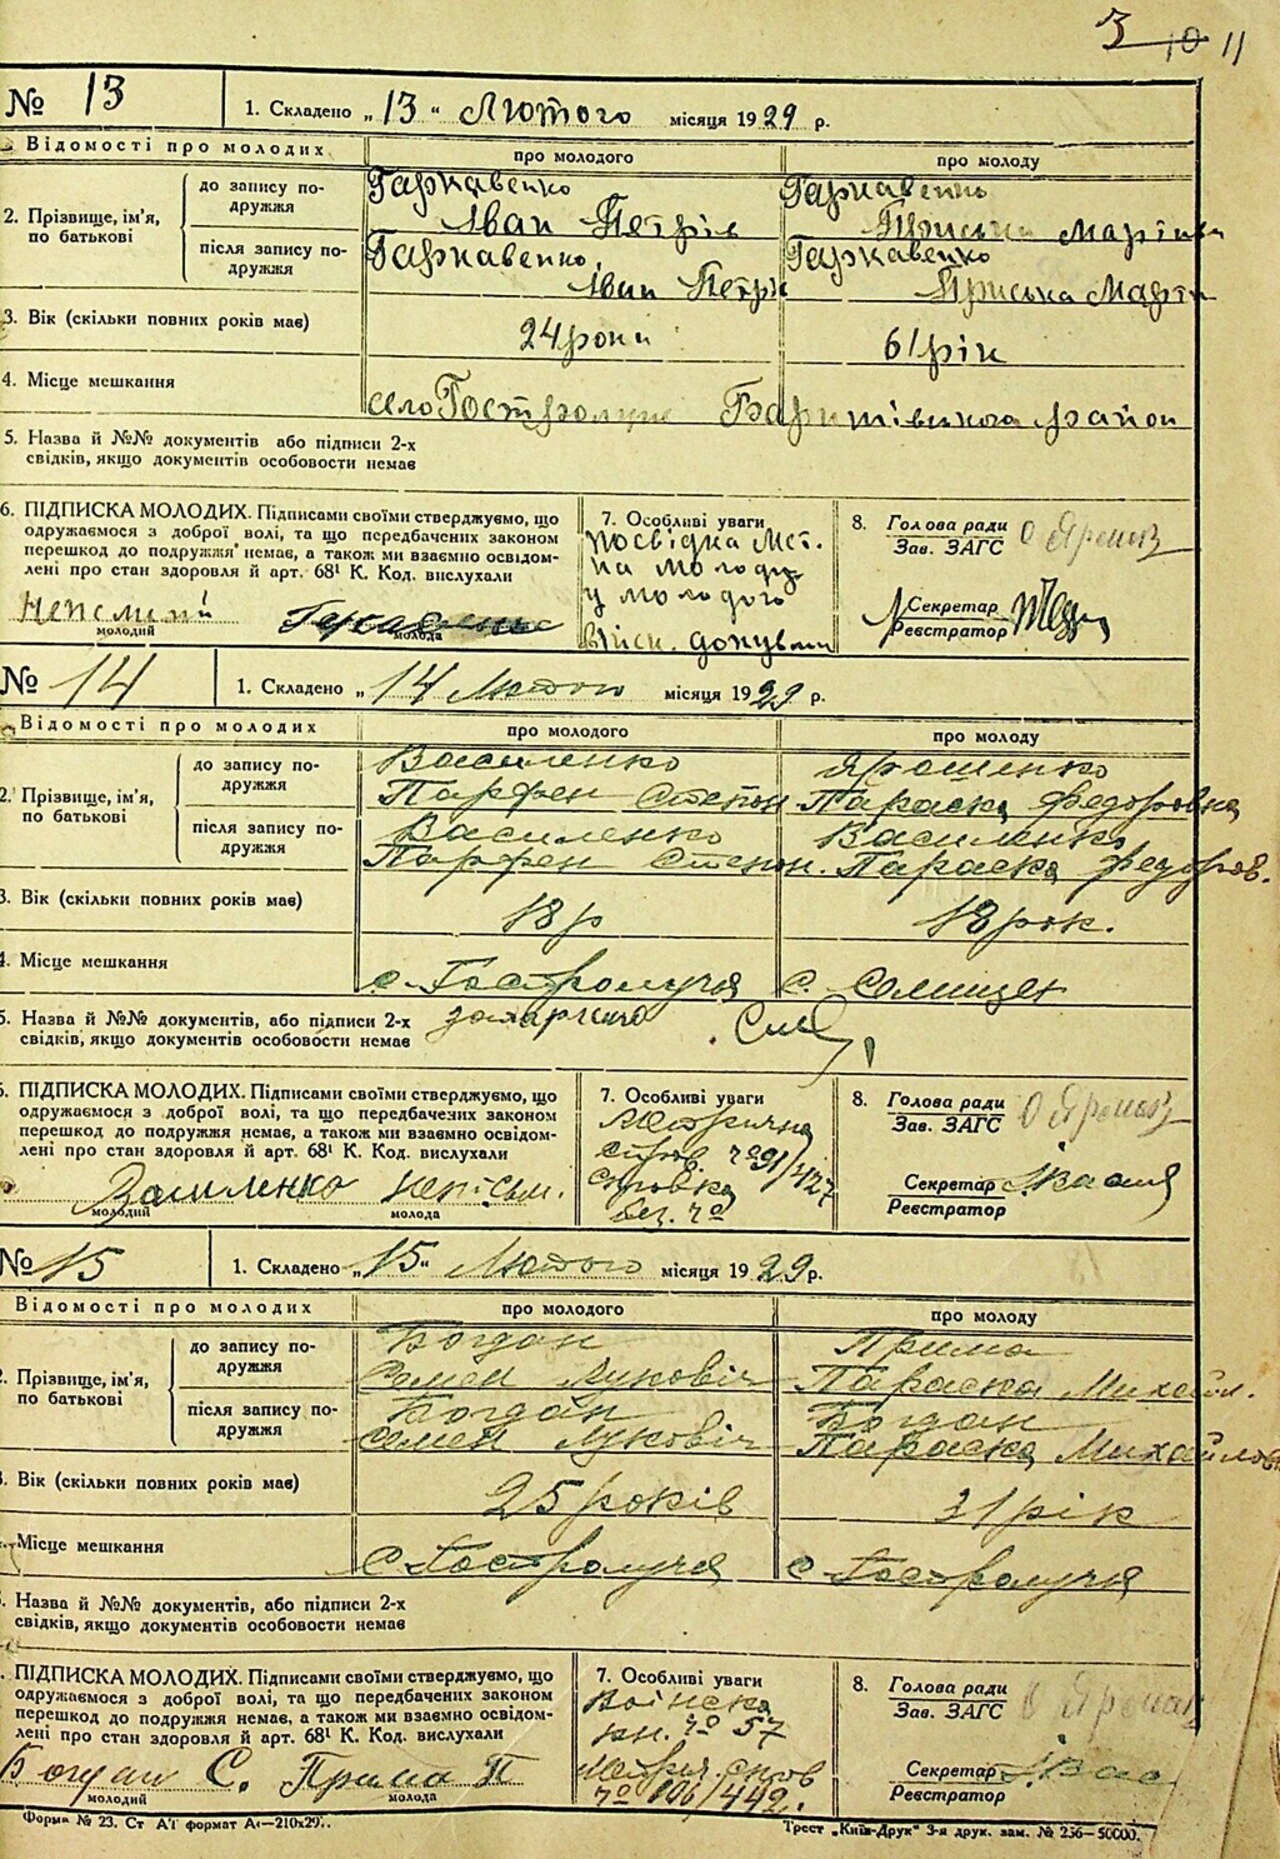 3 10 11
№ 13
1. Складено „13“ Лютого місяця 1929 р.
Відомості про молодих
про молодого
про молоду
2. Прізвище, ім'я, по батькові
до запису подружжя
Гаркавенко
Іван Петрів
Гаркавенко
Приська Мартинів
після запису подружжя
Гаркавенко
Іван Петрів
Гаркавенко
Приська Март
3. Вік (скільки повних років має)
24 роки
61 рік
4. Місце мешкання
село Гостролуччя Баришівського район
5. Назва й №№ документів або підписи 2-х
свідків, якщо документів особовости немає
6. ПІДПИСКА МОЛОДИХ. Підписами своїми стверджуємо, що
одружаємося з доброї волі, та що передбачених законом
перешкод до подружжя немає, а також ми взаємно освідом-
лені про стан здоровля й арт. 68¹ К. Код. вислухали
молодий
молода
7. Особливі уваги
посвідка Мет.
на молоду
у молодого
війск. докумен
8. Голова ради
Зав. ЗАГС
О Ярмак
Секретар
Реєстратор
№ 14
1. Складено „14 Лютого місяця 1929 р.
Відомості про молодих
про молодого
про молоду
2. Прізвище, ім'я,
по батькові
до запису по-
дружжя
Василенко
Парфен Степон
Ярошенко
Параска Федоровна
після запису по-
дружжя
Василенко
Парфен Степон.
Василенко
Параска Федоров.
3. Вік (скільки повних років має)
18 р
18 рок.
4. Місце мешкання
с. Гостролуччя
с. Селищех
5. Назва й №№ документів, або підписи 2-х
свідків, якщо документів особовости немає
6. ПІДПИСКА МОЛОДИХ. Підписами своїми стверджуємо, що
одружаємося з доброї волі, та що передбачених законом
перешкод до подружжя немає, а також ми взаємно освідом-
лені про стан здоровля й арт. 68¹ К. Код. вислухали
Василенко неписьм.
молодий
молода
7. Особливі уваги
Метрична
справ. № 91/427
справка
без. №
8. Голова ради
Зав. ЗАГС
О Ярмак
Секретар
Реєстратор
№ 15
1. Складено „15“ Лютого місяця 1929 р.
Відомості про молодих
про молодого
про молоду
2. Прізвище, ім'я,
по батькові
до запису по-
дружжя
Богдан
Семен Луковіч
Прима
Параска Михайл.
після запису по-
дружжя
Богдан
Семен Луковіч
Богдан
Параска Михайлов
3. Вік (скільки повних років має)
25 років
21 рік
Місце мешкання
с Гостролуччя
с Гостролуччя
Назва й №№ документів, або підписи 2-х
свідків, якщо документів особовости немає
ПІДПИСКА МОЛОДИХ. Підписами своїми стверджуємо, що
одружаємося з доброї волі, та що передбачених законом
перешкод до подружжя немає, а також ми взаємно освідом-
лені про стан здоровля й арт. 68¹ К. Код. вислухали
Богдан С. Прима П
молодий
молода
7. Особливі уваги
Воінска
кн. № 57
Метрич. спов
№ 106/442.
8. Голова ради
Зав. ЗАГС
О Ярмак
Секретар
Реєстратор
Форма № 23. Ст
формат А₄—210х29
Трест „Київ-Друк“ 3-я друк. зам. № 256—50000.